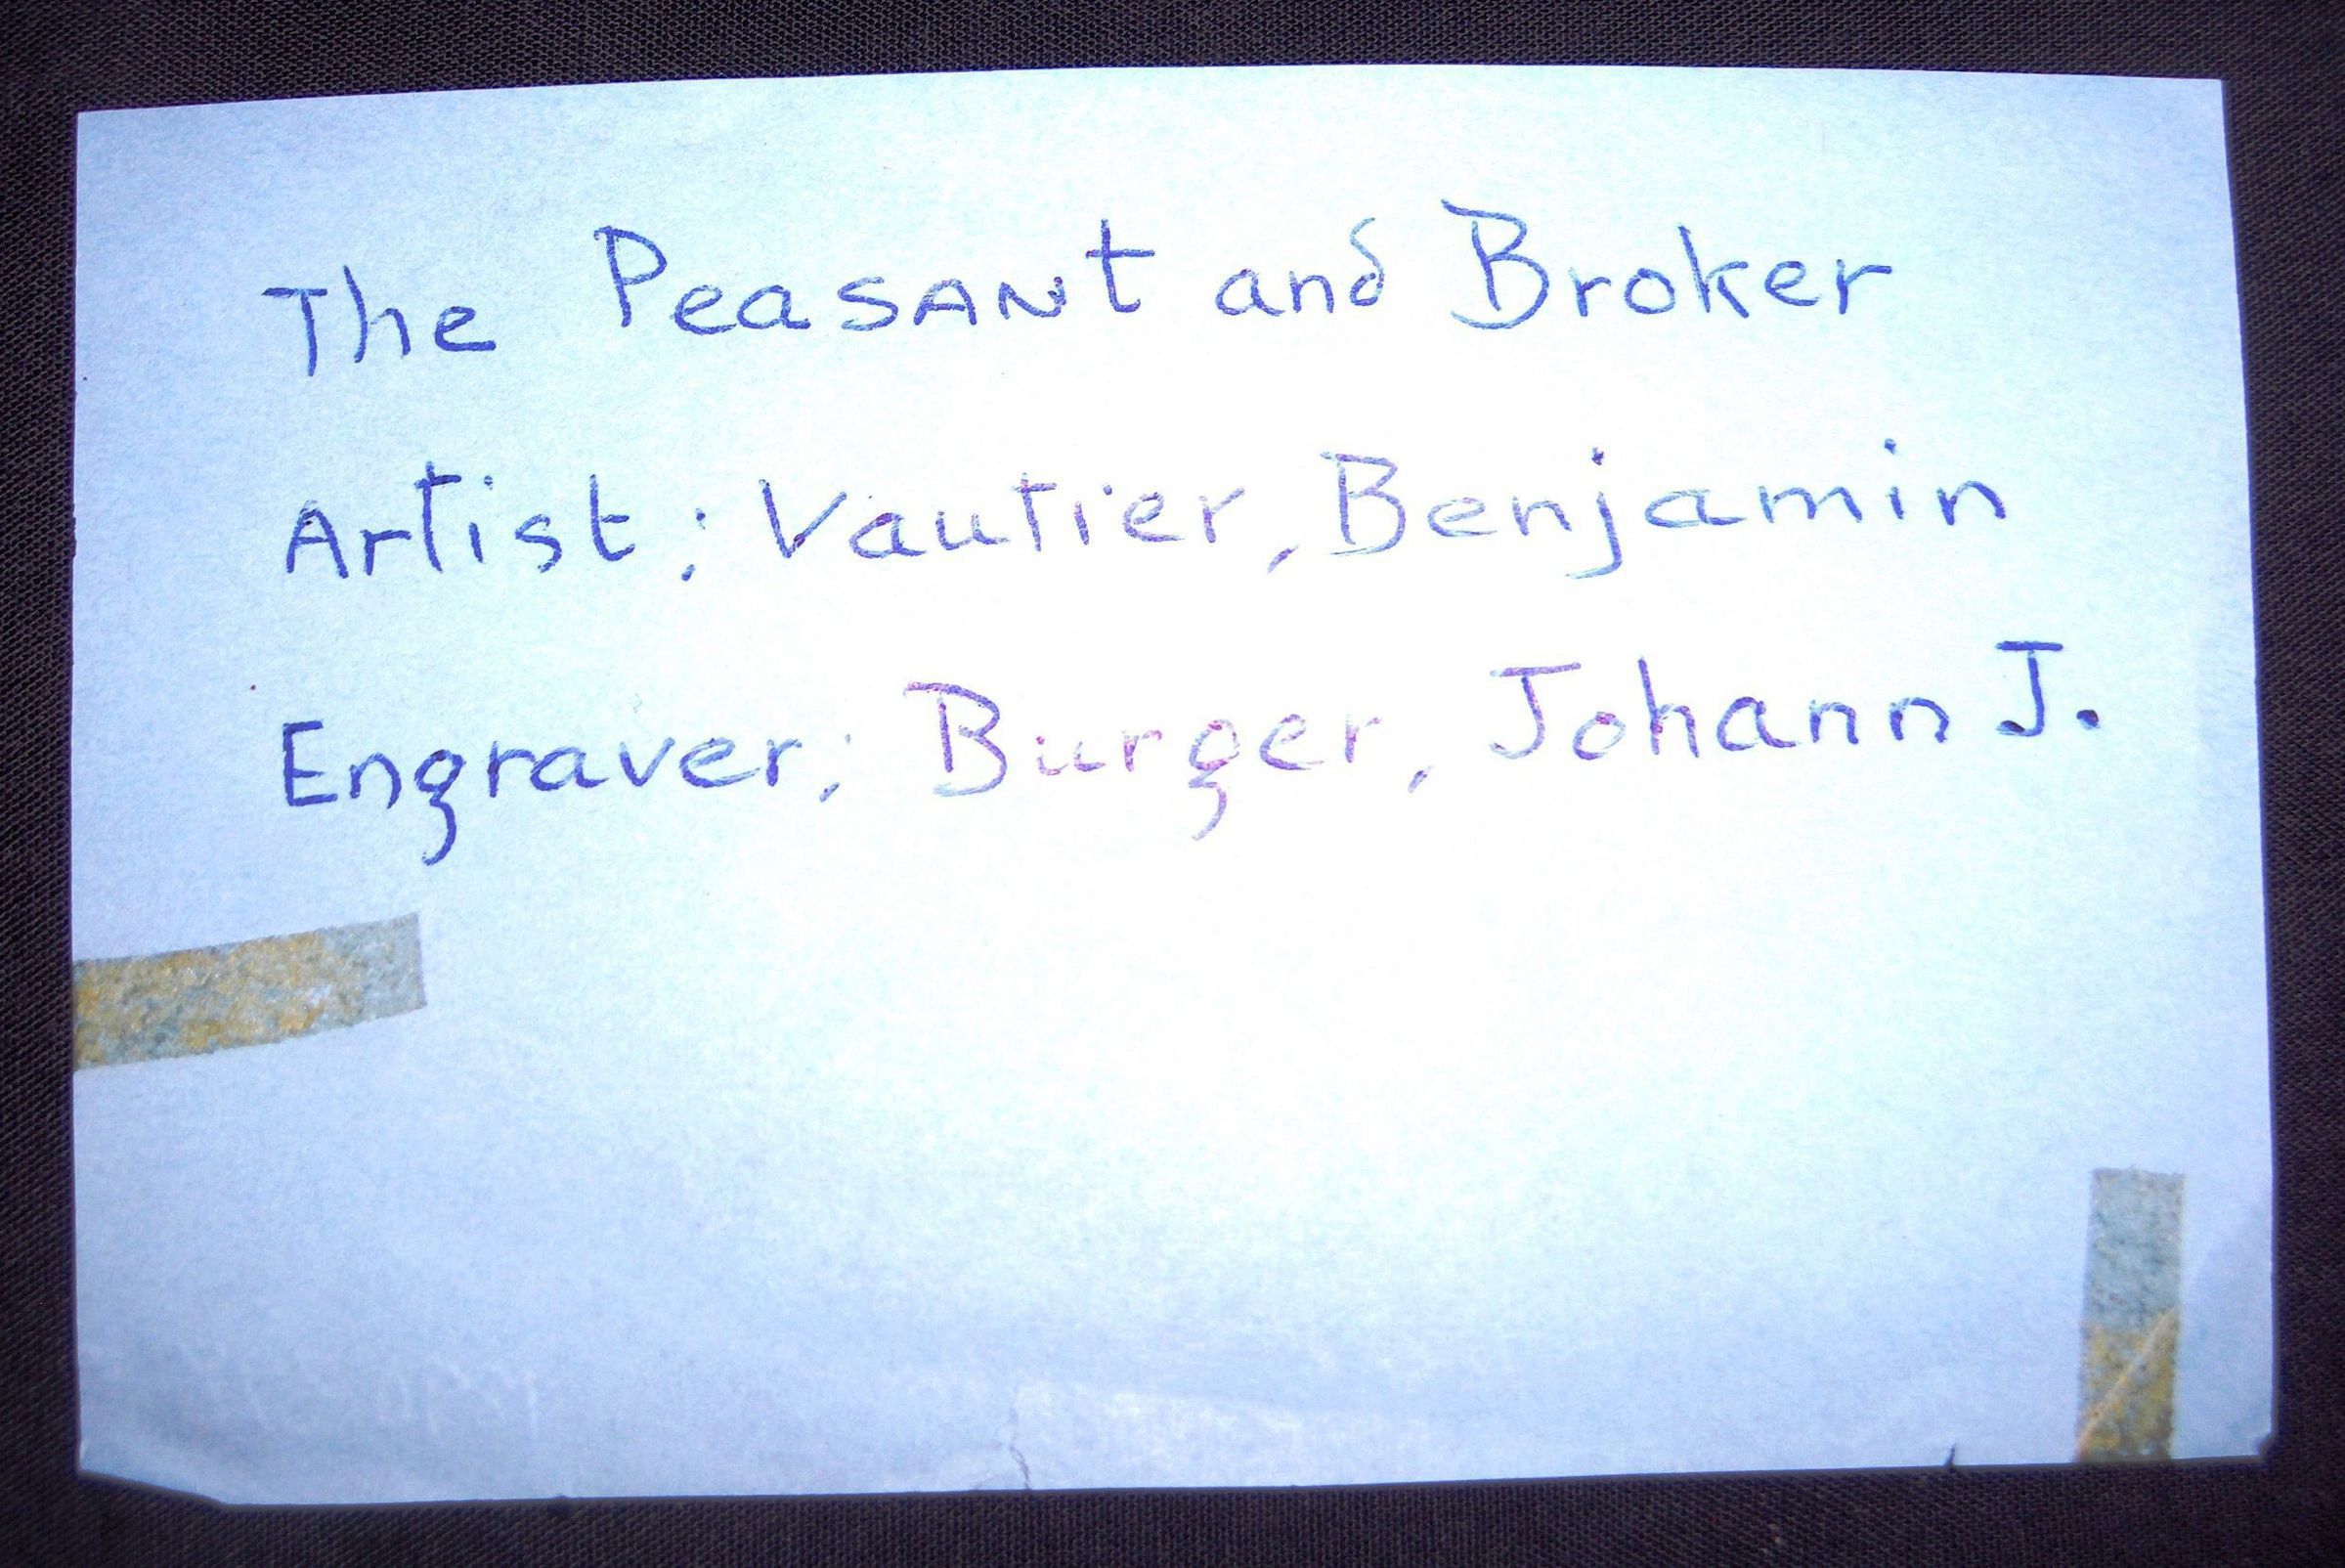 The PeasANt and Broker
Artist: Vautier, Benjamin
Engraver: Burger, Johann J.